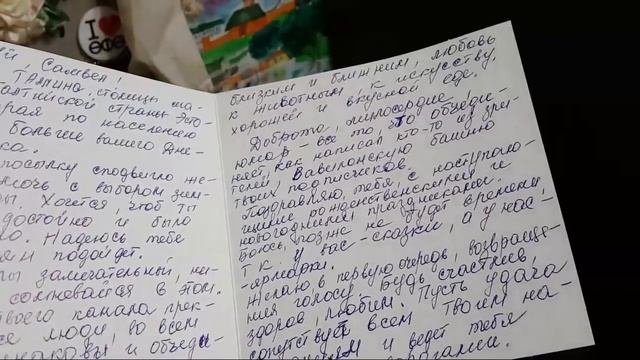 I
ФӨФ
ей, Самвел!
ТАЛЛИНА, столицы ма-
алтийской страны Эсто-
орая по населению
больше вашего Дне-
ка.
посылку сподвигло же-
мочь с выбором зим-
ы. Хочется, чтоб ТП
достойно и было
но. Надеюсь тебе
подойдет.
ты замечательный, не-
сомневайся в этом.
твоего канала прек-
се люди, во всем
и объеди-
близким и ближним, любовь
к животным, к искусству,
хорошей и вкусной еде.
Доброта, милосердие,
юмор - всё то, что объеди-
няет, как написал кто-то из зри-
телей, Вавилонскую башню
твоих подписчиков.
Поздравляю тебя с наступаю-
щими рождественскими и
новогодними праздниками.
Боюсь, позже не будет времени,
т.к. у вас - сказки, а у нас,
- ярмарки.
Желаю в первую очередь, возвраще-
ния голосу. Будь счастлив,
здоров, любим. Пусть удача
сопутствует всем твоим на-
и ведет тебя